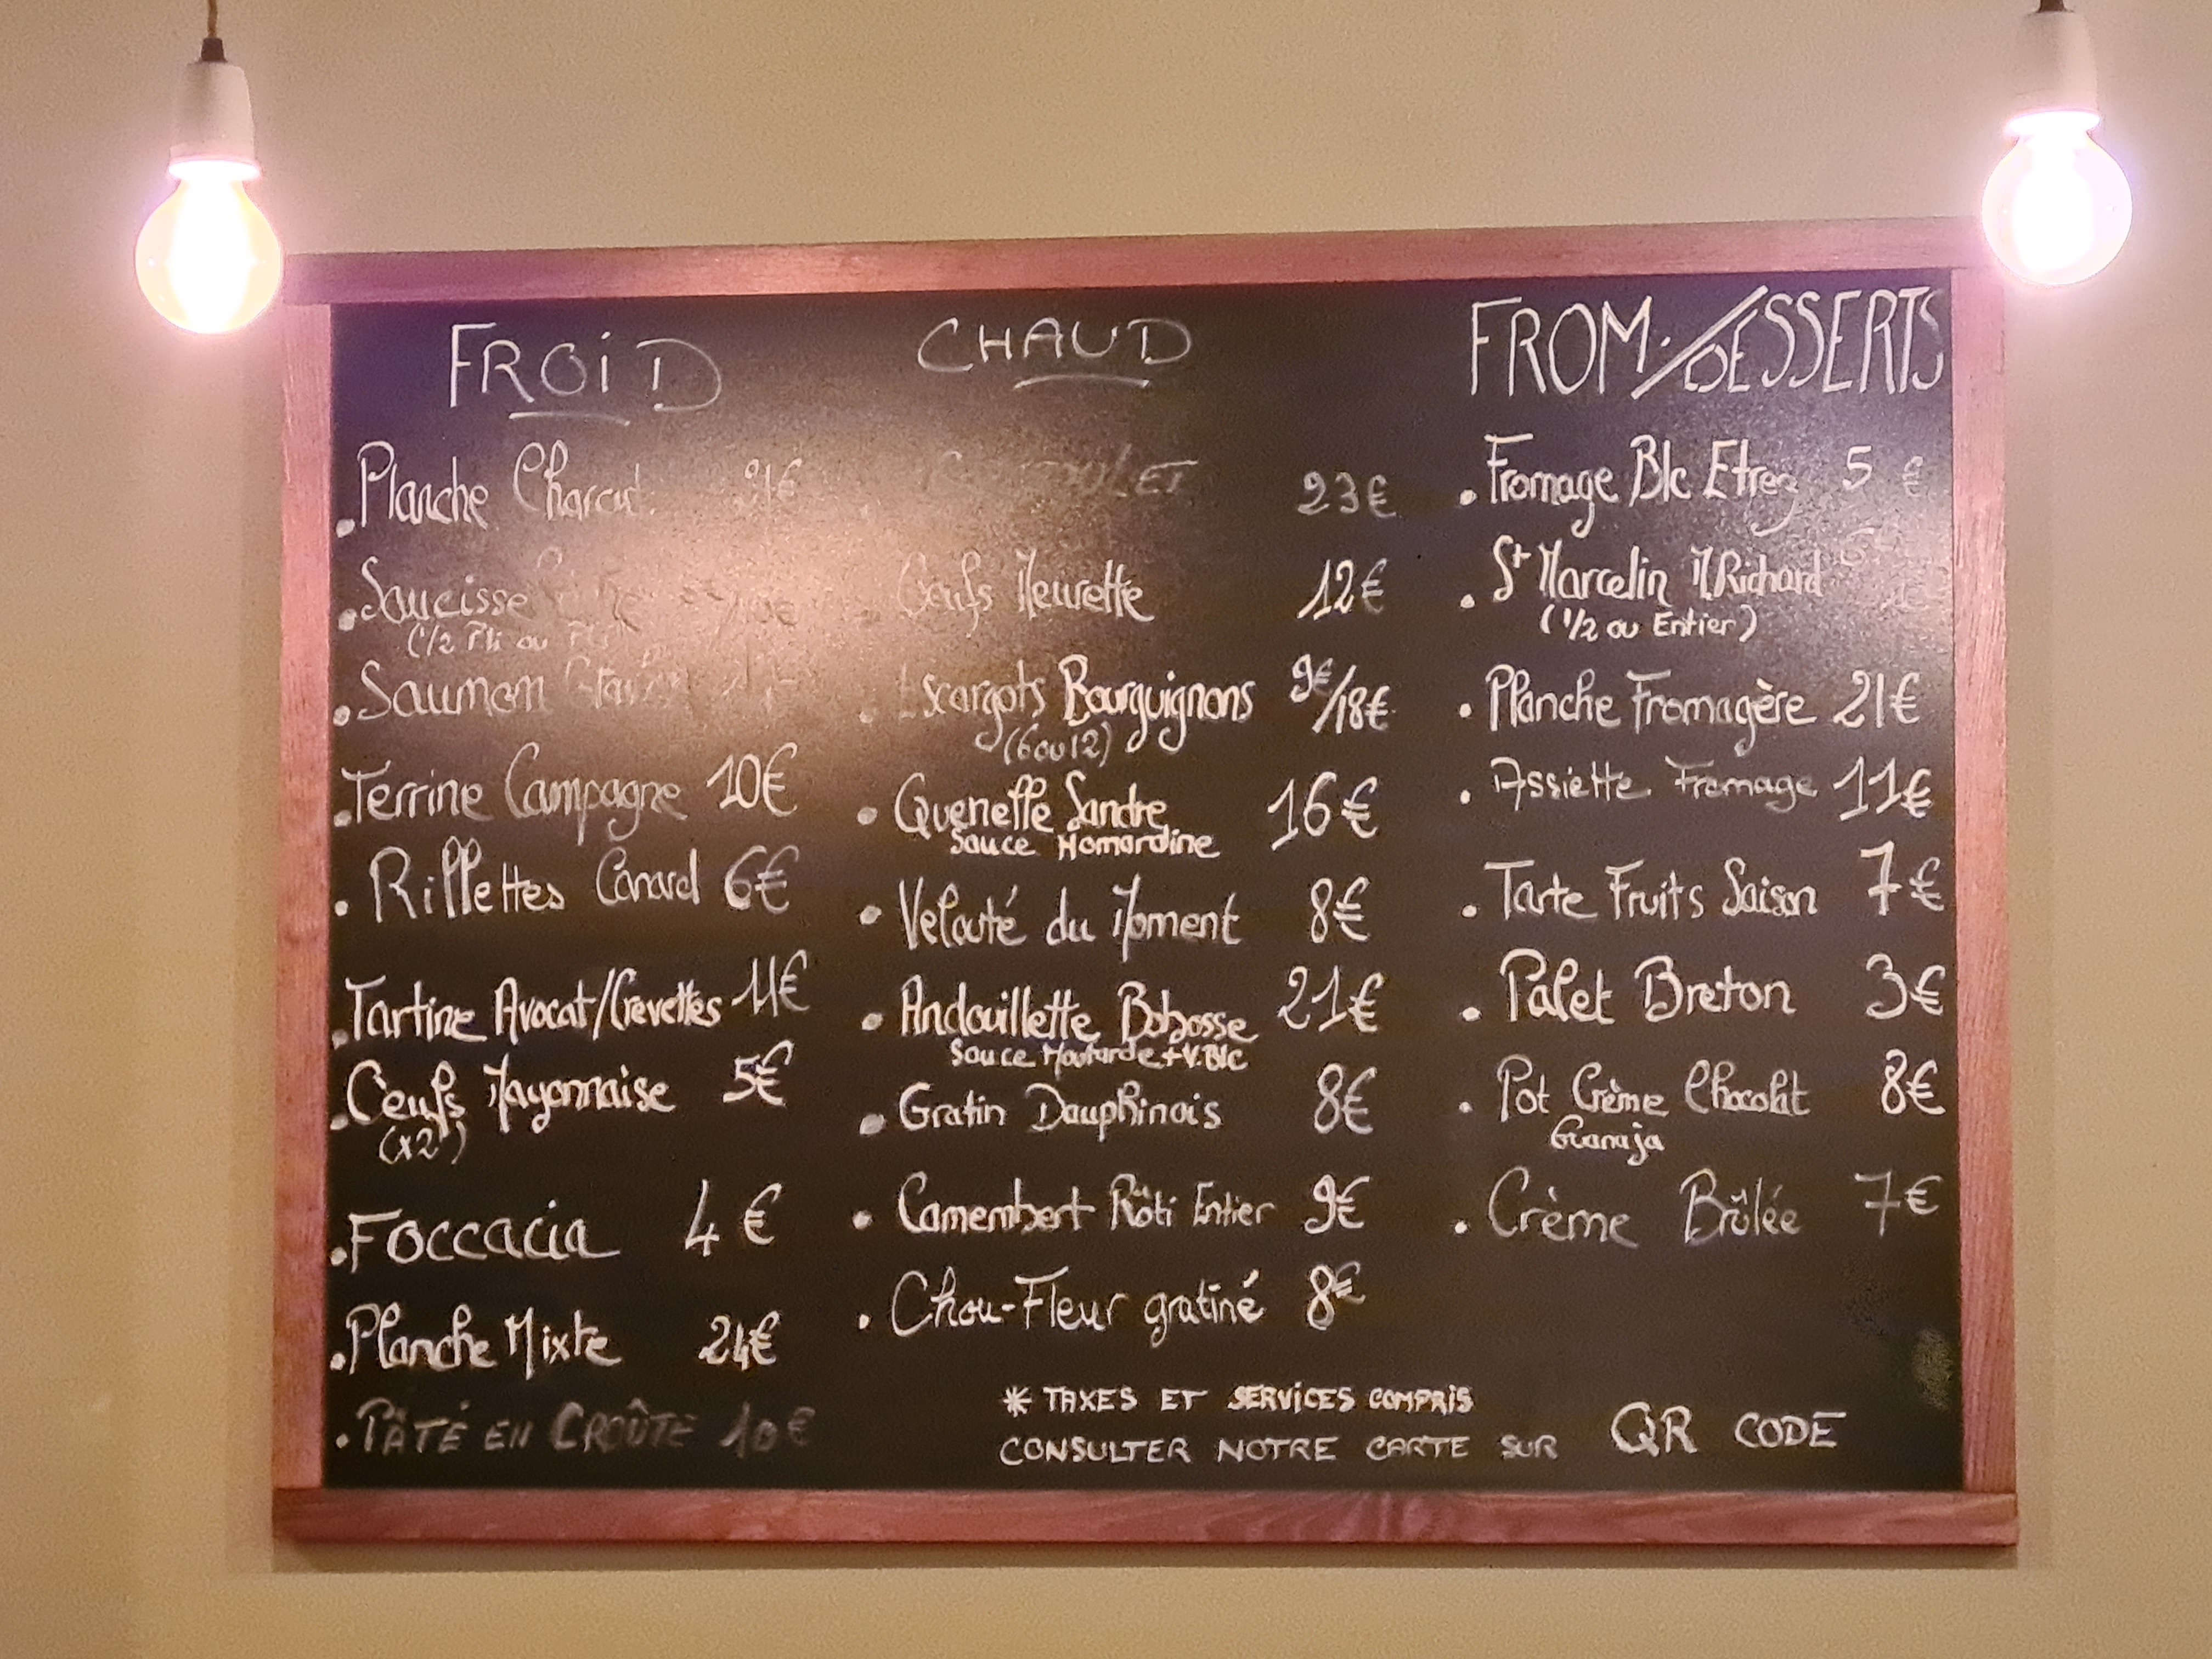 FROID
. Planche Charcut. 21€
. Saucisse
(1/2 Pli ou
. Saumon
. Terrine Campagne 10€
. Rillettes Canard 6€
. Tartine Avocat/Crevettes 11€
. Oeufs Mayonnaise 5€
(x2)
. Foccacia 4€
. Planche Mixte 24€
. PÂTÉ EN CROÛTE 10€
CHAUD
23€
Oeufs Meurette 12€
. Escargots Bourguignons 9€/18€
(6 ou 12)
. Quenelle Sandre 16€
Sauce Homardine
. Velouté du Moment 8€
. Andouillette Bobosse 21€
Sauce Moutarde + V. Blc
. Gratin Dauphinois 8€
. Camembert Rôti Entier 9€
. Chou-Fleur gratiné 8€
FROM./DESSERTS
. Fromage Blc Etrez 5 €
. St Marcelin M. Richard
(1/2 ou Entier)
. Planche Fromagère 21€
. Assiette Fromage 11€
. Tarte Fruits Saison 7€
. Palet Breton 3€
. Pot Crème Chocolat 8€
Guanaja
. Crème Brûlée 7€
* TAXES ET SERVICES COMPRIS
CONSULTER NOTRE CARTE SUR QR CODE